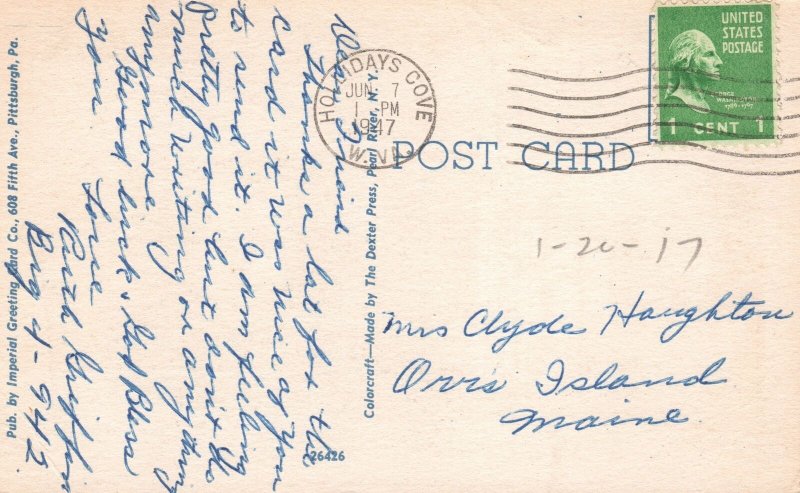 Pub. by Imperial Greeting Card Co., 608 Fifth Ave., Pittsburgh, Pa.
Dear Friend
Thanks a lot for the
card it was nice of you
to send it. I am feeling
pretty good but don't do
much writing or anything
anymore
Good luck & God Bless
you
Love
Ruth Griffin
Box 4-942
26426
Colorcraft—Made by The Dexter Press, Pearl River, N. Y.
HOLLIDAYS COVE
JUN 7
1 PM
1947
W. VA.
UNITED
STATES
POSTAGE
GEORGE
WASHINGTON
1789-1797
1 CENT 1
POST CARD
1-20-17
Mrs Clyde Haughton
Orrs Island
Maine